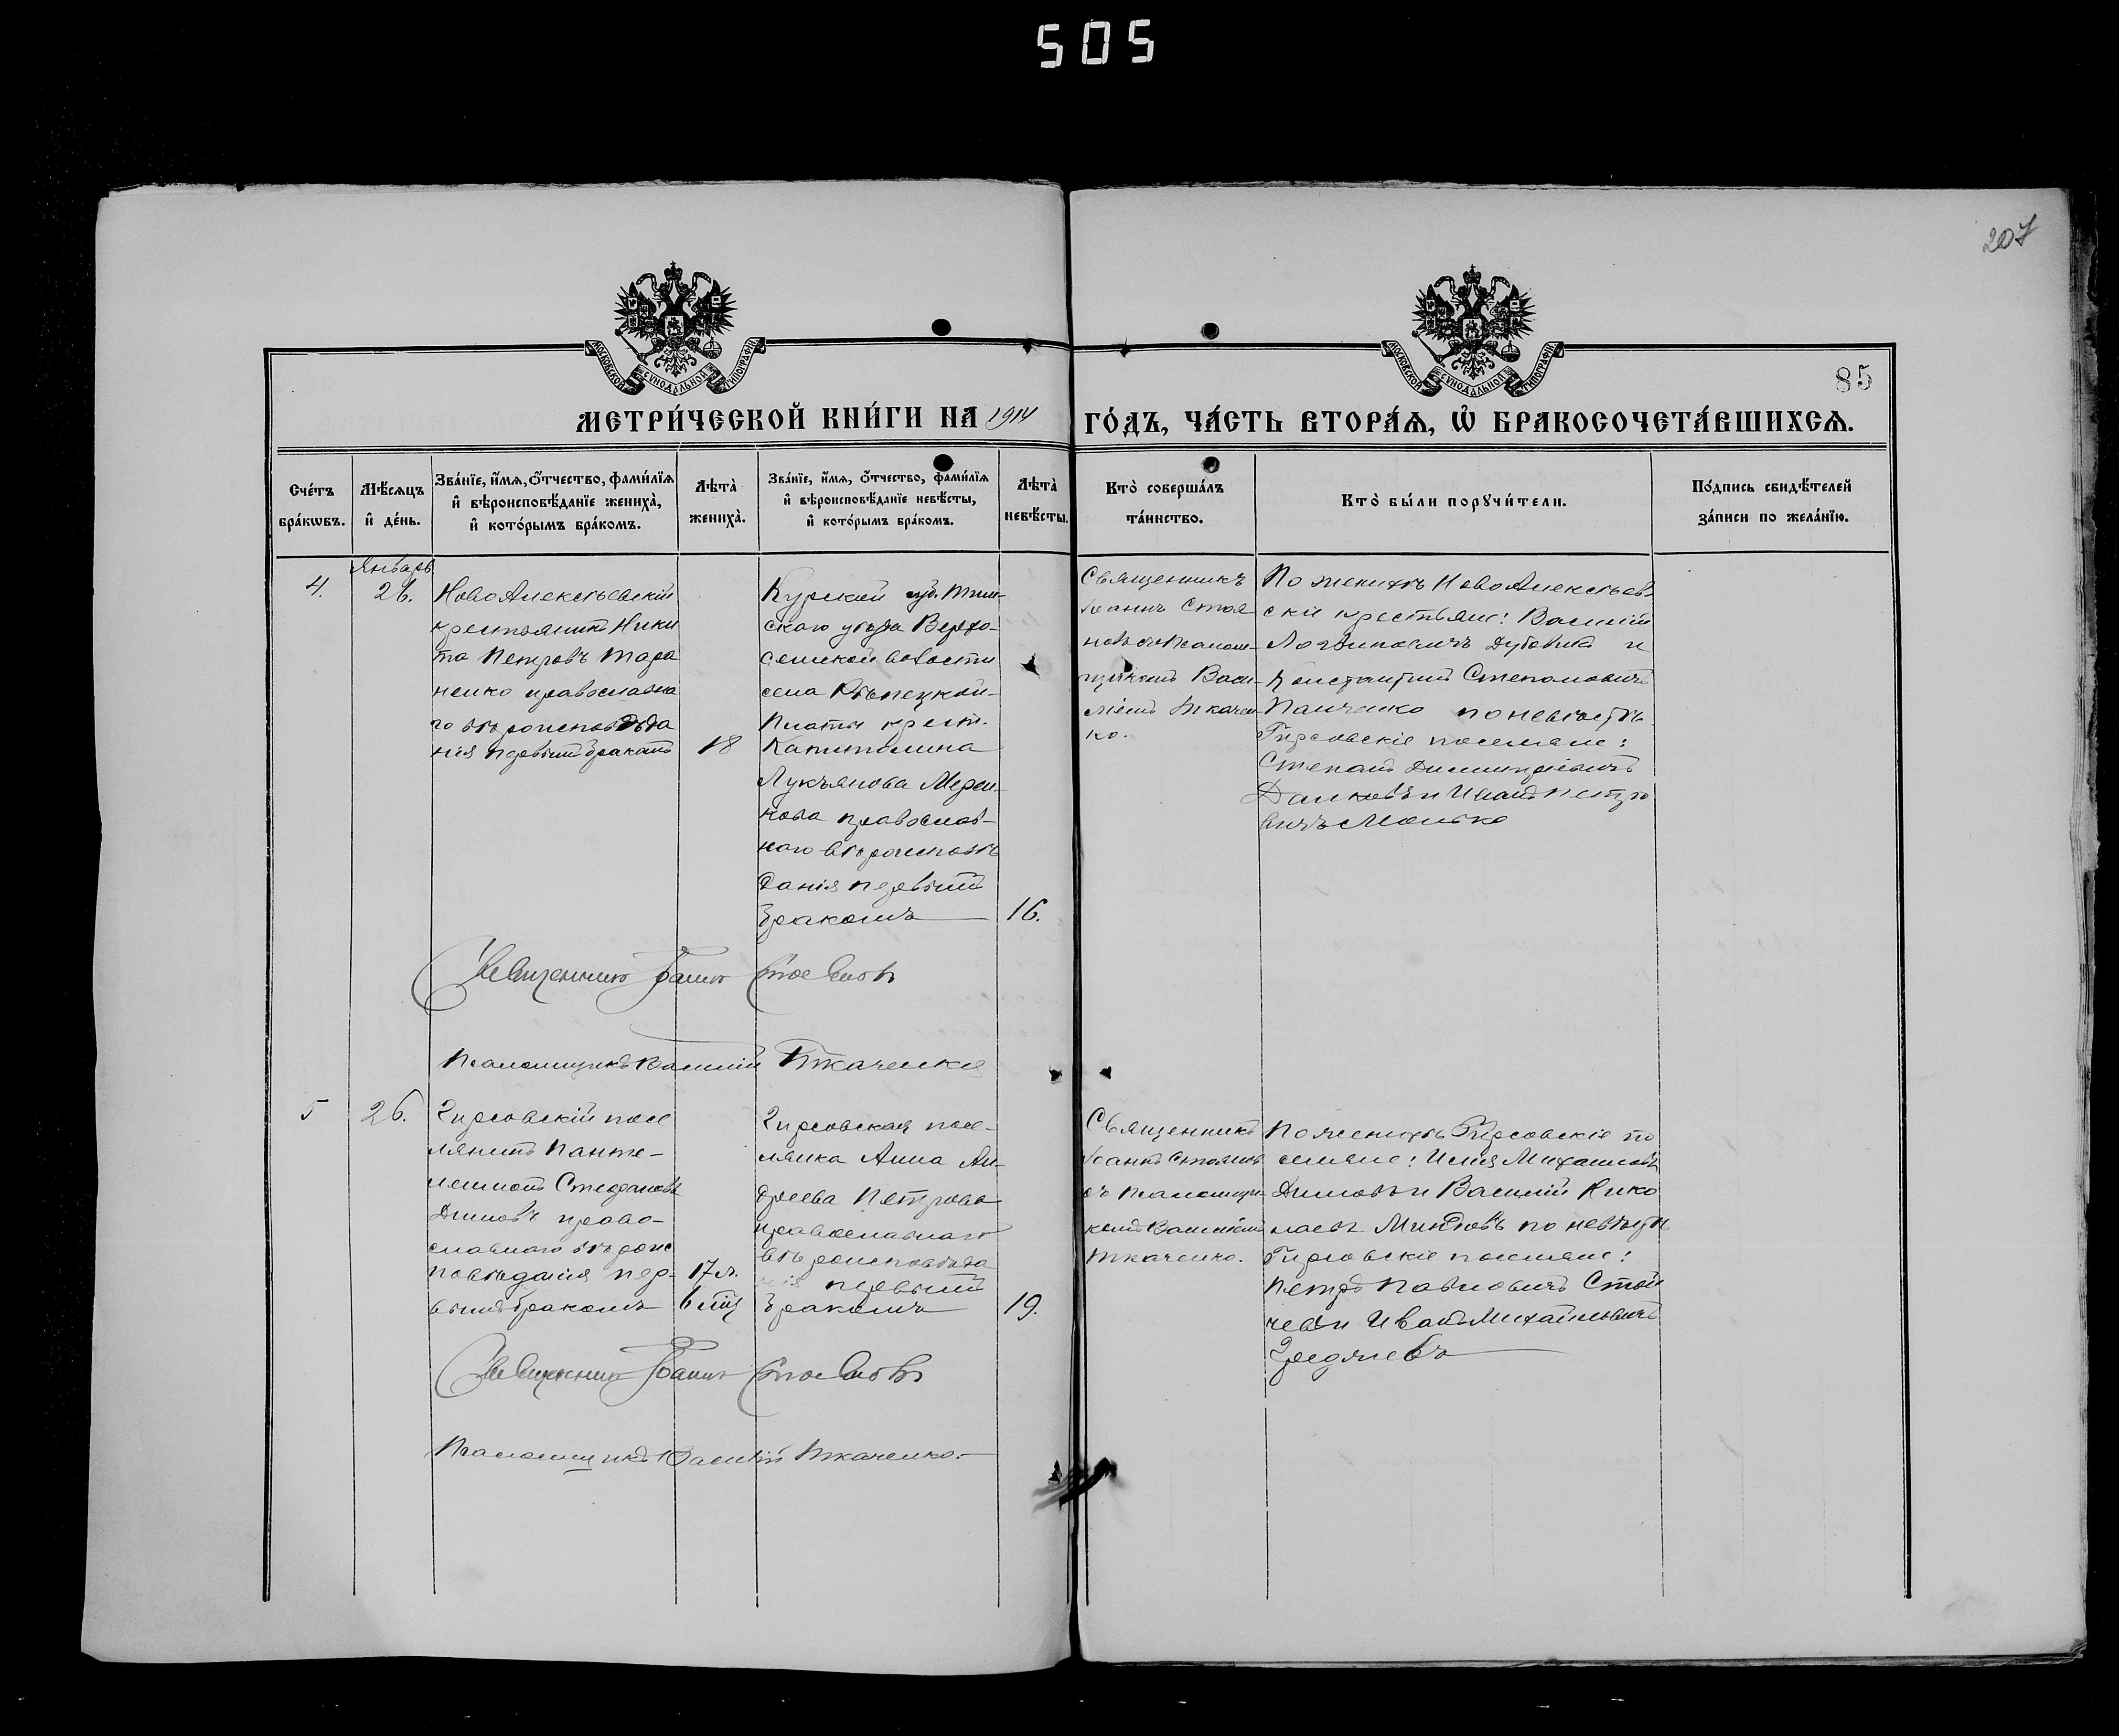 505
207
85
МОСКОВСКОЙ СѴНОДАЛЬНОЙ ТИПОГРАФІИ
МОСКОВСКОЙ СѴНОДАЛЬНОЙ ТИПОГРАФІИ
МЕТРИ́ЧЕСКОЙ КНИ́ГИ НА 1914 ГО́ДЪ, ЧА́СТЬ ВТОРА́Ѧ, Ѽ БРАКОСОЧЕТА́ВШИХСѦ.
Сче́тъ
бра́кѡвъ.
Мѣ́сѧцъ
и҆ де́нь.
Зва́нїе, и҆́мѧ, ѻ҆́тчество, фами́лїѧ
и҆ вѣроисповѣ́данїе жениха̀,
и҆ кото́рымъ бра́комъ.
Лѣ́та̀
жениха̀.
Зва́нїе, и҆́мѧ, ѻ҆́тчество, фами́лїѧ
и҆ вѣроисповѣ́данїе невѣ́сты,
и҆ кото́рымъ бра́комъ.
Лѣ́та̀
невѣ́сты.
Кто̀ соверша́лъ
та́инство.
Кто̀ бы́ли порꙋчи́тели.
По́дпись свидѣ́телей
за́писи по жела́нїю.
4.
Январь
26.
НовоАлексѣевскій
крестьянинъ Ники
та Петровъ Тара
ненко православна
го вѣроисповѣда
нія первымъ бракомъ
18
Курской губ. Тим-
скаго уѣзда Верхо-
семской волости
села Рѣпецкой-
Платы крест.
Капитолина
Лукъянова Мерен-
кова православ-
наго вѣроисповѣ
данія первымъ
бракомъ
16.
Священникъ
Іоаннъ Стоя
новъ съ псалом-
щикомъ Васи-
ліемъ Ткачен
ко.
По женихѣ НовоАлексѣев
скіе крестьяне: Василій
Логвиновичъ Дубовикъ и
Константинъ Степановичъ
Панченко по невѣстѣ
Гирсовскіе поселяне:
Степанъ Димитріевичъ
Данковъ и Иванъ Петро
вичъ
Священникъ Іоаннъ Стояновъ
Псаломщикъ Василій Ткаченко
5
26.
Гирсовскій посе
лянинъ Панте-
леимонъ Стефановъ
Димовъ право-
славнаго вѣроис
повѣданія пер-
вымъ бракомъ
17 л.
6 мѣц
Гирсовская посе-
лянка Анна Ан-
дреева Петрова
православнаго
вѣроисповѣда
нія первымъ
бракомъ
19.
Священникъ
Іоаннъ Стоянов
съ псаломщи-
комъ Василіемъ
Ткаченко.
По женихѣ Гирсовскіе по
селяне: Илія Михаиловъ
Димовъ и Василій Нико
лаевъ Минковъ по невѣстѣ
Гирсовскіе поселяне:
Петръ Павловичъ Стой
чевъ и Иванъ Михайловичъ
Священникъ Іоаннъ Стояновъ
Псаломщикъ Василій Ткаченко.